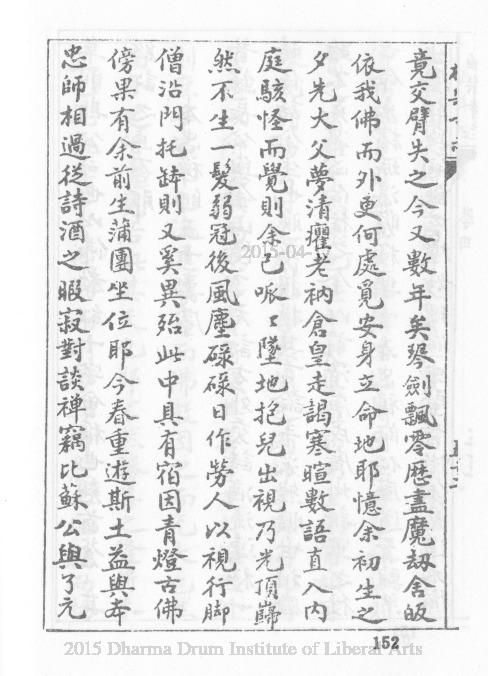 竟交臂失之今又數年矣琴劍飄零歷盡魔劫舍皈
依我佛而外更何處覓安身立命地耶憶余初生之
夕先大父夢清癯老衲倉皇走謁寒暄數語直入内
庭駭怪而覺則余已呱〻墜地抱兒出視乃光頂巋
然不生一髮弱冠後風塵碌碌日作勞人以視行脚
僧沿門托缽則又奚異殆此中具有宿因青燈古佛
傍果有余前生蒲團坐位耶今春重遊斯土益與夲
忠師相過從詩酒之暇寂對談禅竊比蘇公與了元
152
2015-04-
2015 Dharma Drum Institute of Liberal Arts